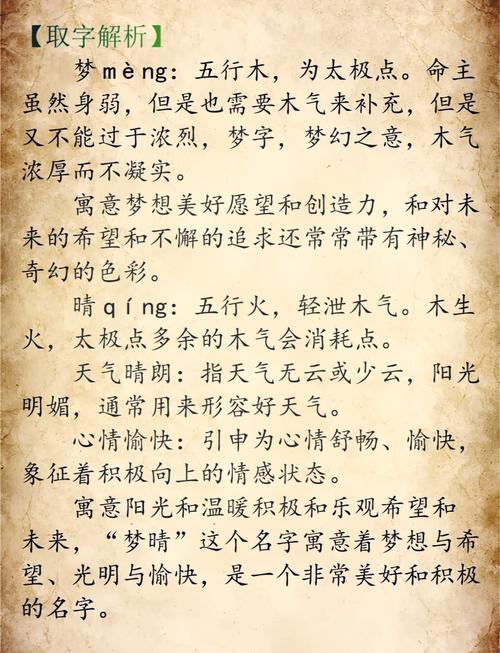 【取字解析】
梦mèng：五行木，为太极点。命主
虽然身弱，但是也需要木气来补充，但是
又不能过于浓烈，梦字，梦幻之意，木气
浓厚而不凝实。
寓意梦想美好愿望和创造力，和对未
来的希望和不懈的追求还常常带有神秘、
奇幻的色彩。
晴qíng：五行火，轻泄木气。木生
火，太极点多余的木气会消耗点。
天气晴朗：指天气无云或少云，阳光
明媚，通常用来形容好天气。
心情愉快：引申为心情舒畅、愉快，
象征着积极向上的情感状态。
寓意阳光和温暖积极和乐观希望和
未来，“梦晴”这个名字寓意着梦想与希
望、光明与愉快，是一个非常美好和积极
的名字。